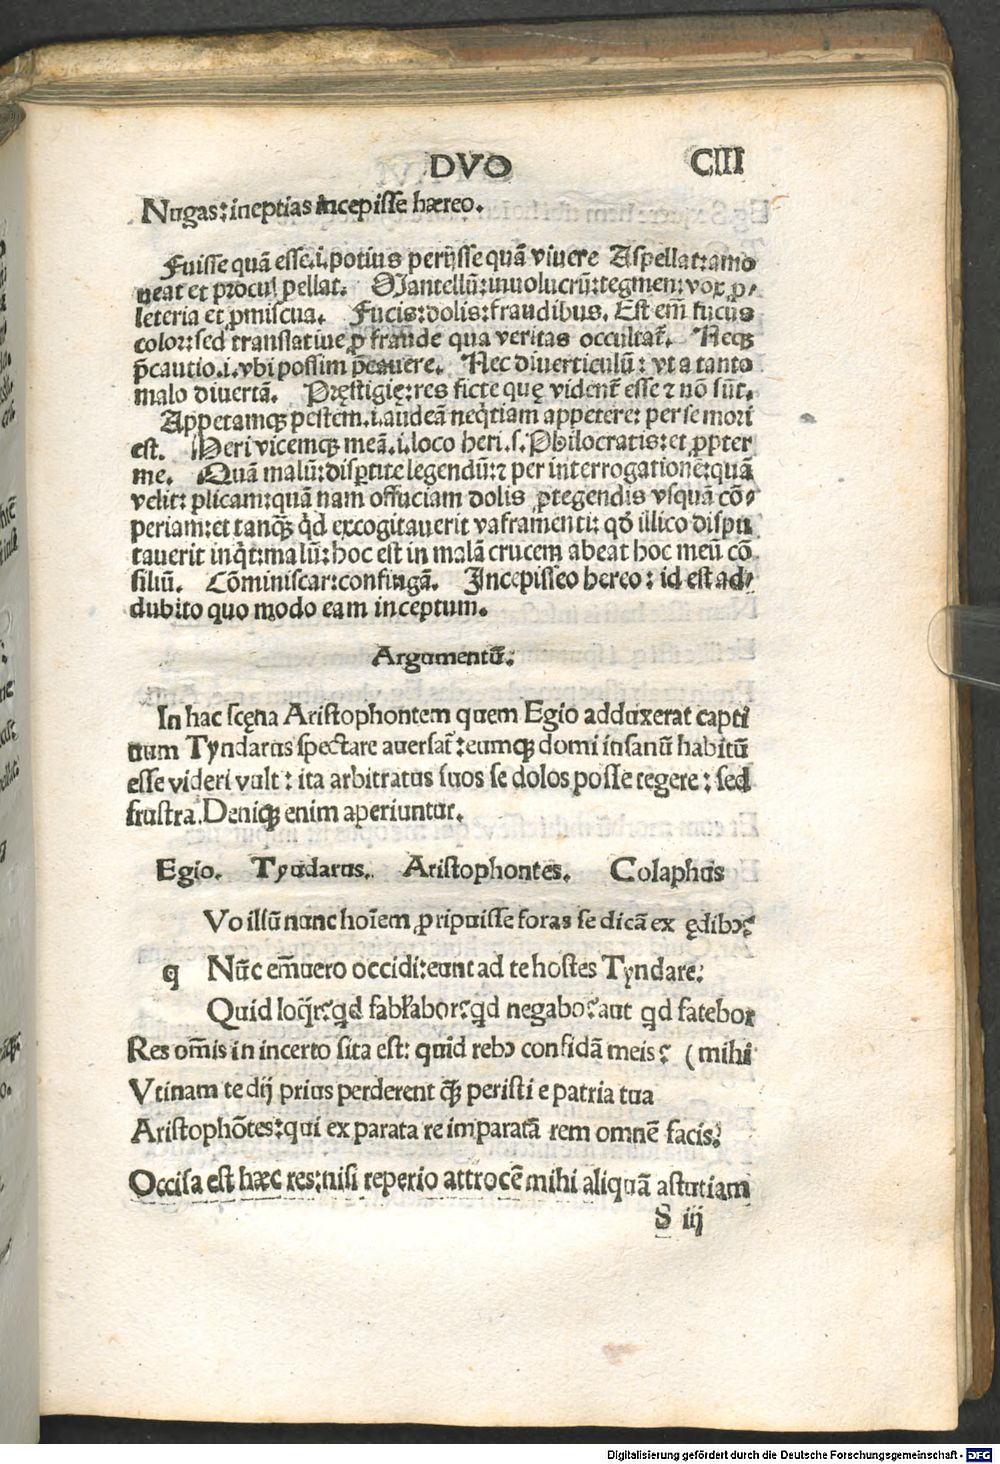 DVO CIII
Nugas: ineptias incepisse hæreo.
Fuisse quā esse.i.potius perijsse quā viuere Aspellat:amo
ueat et procul pellat. Mantellū:inuolucrū:tegmen:vox ꝓ⸗
leteria et ꝓmiscua. Fucis:dolis:fraudibus. Est em̄ fucus
color:sed translatiue ꝓ fraude qua veritas occultat̄. Necꝫ
p̄cautio.i.vbi possim p̄cauere. Nec diuerticulū: vt a tanto
malo diuertā. Pręstigię:res ficte quę vident̄ esse ⁊ nō sūt.
Appetamqꝫ pestem.i.audeā neq̇tiam appetere: per se mori
est. Heri vicemqꝫ meā.i.loco heri.s.Philocratis:et ꝓpter
me. Quā malū:disꝑtite legendū:⁊ per interrogationē:quā
velit: plicam:quā nam offuciam dolis ꝓtegendis vsquā cō⸗
periam:et tanqꝫ q̇d excogitauerit vaframenti: qd̄ illico dispu
tauerit inq̇t:malū:hoc est in malā crucem abeat hoc meū cō
siliū. Cōminiscar:confingā. Incepisseo hereo: id est ad⸗
dubito quo modo eam inceptum.
Argumentū.
In hac scęna Aristophontem quem Egio adduxerat capti
uum Tyndarus spectare auersat̄:eumqꝫ domi insanū habitū
esse videri vult: ita arbitratus suos se dolos posse tegere: sed
frustra.Deniqꝫ enim aperiuntur.
Egio. Tyndarus. Aristophontes. Colaphus
Vo illū nunc hoīem ꝓripuisse foras se dicā ex ędibꝰ?
q Nūc em̄uero occidi:eunt ad te hostes Tyndare:
Quid loq̄r?qd fabl̄abor?qd negabo?aut qd fatebor
Res om̄is in incerto sita est: quid rebꝰ confidā meis? (mihi
Vtinam te dij prius perderent qꝫ̄ peristi e patria tua
Aristophōtes:qui ex parata re imparatā rem omnē facis.
Occisa est hæc res:nisi reperio attrocē mihi aliquā astutiam
S iij
Digitalisierung gefördert durch die Deutsche Forschungsgemeinschaft - DFG